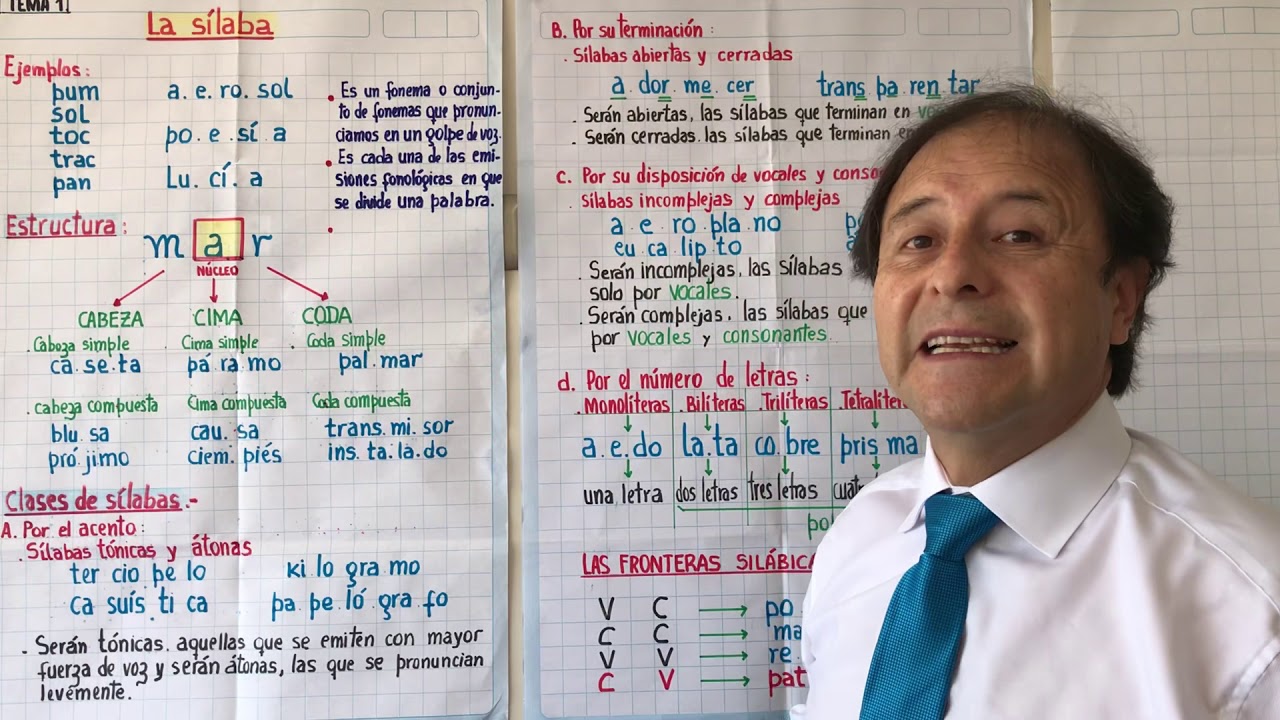 TEMA 1
La sílaba
Ejemplos:
pum
sol
toc
trac
pan
a. e. ro. sol
po. e. sí. a
Lu. cí. a
. Es un fonema o conjun-
to de fonemas que pronun-
ciamos en un golpe de voz.
. Es cada una de las emi-
siones fonológicas en que
se divide una palabra.
.
Estructura:
m a r
NÚCLEO
CABEZA CIMA CODA
. Cabeza simple . Cima simple . Coda simple
ca. se. ta pá ra mo pal. mar
. cabeza compuesta Cima compuesta Coda compuesta
blu. sa cau. sa trans. mi. sor
pró jimo ciem. piés ins. ta. la. do
Clases de sílabas.-
A. Por el acento:
. Sílabas tónicas y átonas
ter cio pe lo ki lo gra mo
ca suís ti ca pa pe ló gra fo
. Serán tónicas, aquellas que se emiten con mayor
fuerza de voz y serán átonas, las que se pronuncian
levemente.
B. Por su terminación:
. Sílabas abiertas y cerradas
a. dor. me. cer trans pa ren tar
. Serán abiertas, las sílabas que terminan en
. Serán cerradas. las sílabas que terminan
c. Por su disposición de vocales y
Sílabas incomplejas y complejas
a. e. ro pla no
eu ca lip to
. Serán incomplejas, las sílabas
solo por vocales.
. Serán complejas, las sílabas que
por vocales y consonantes.
d. Por el número de letras:
. Monolíteras . Bilíteras . Trilíteras
a. e. do la. ta co. bre pris ma
una letra dos letras tres letras
LAS FRONTERAS
V C → po
C C → ma
V V → re
C V → pat